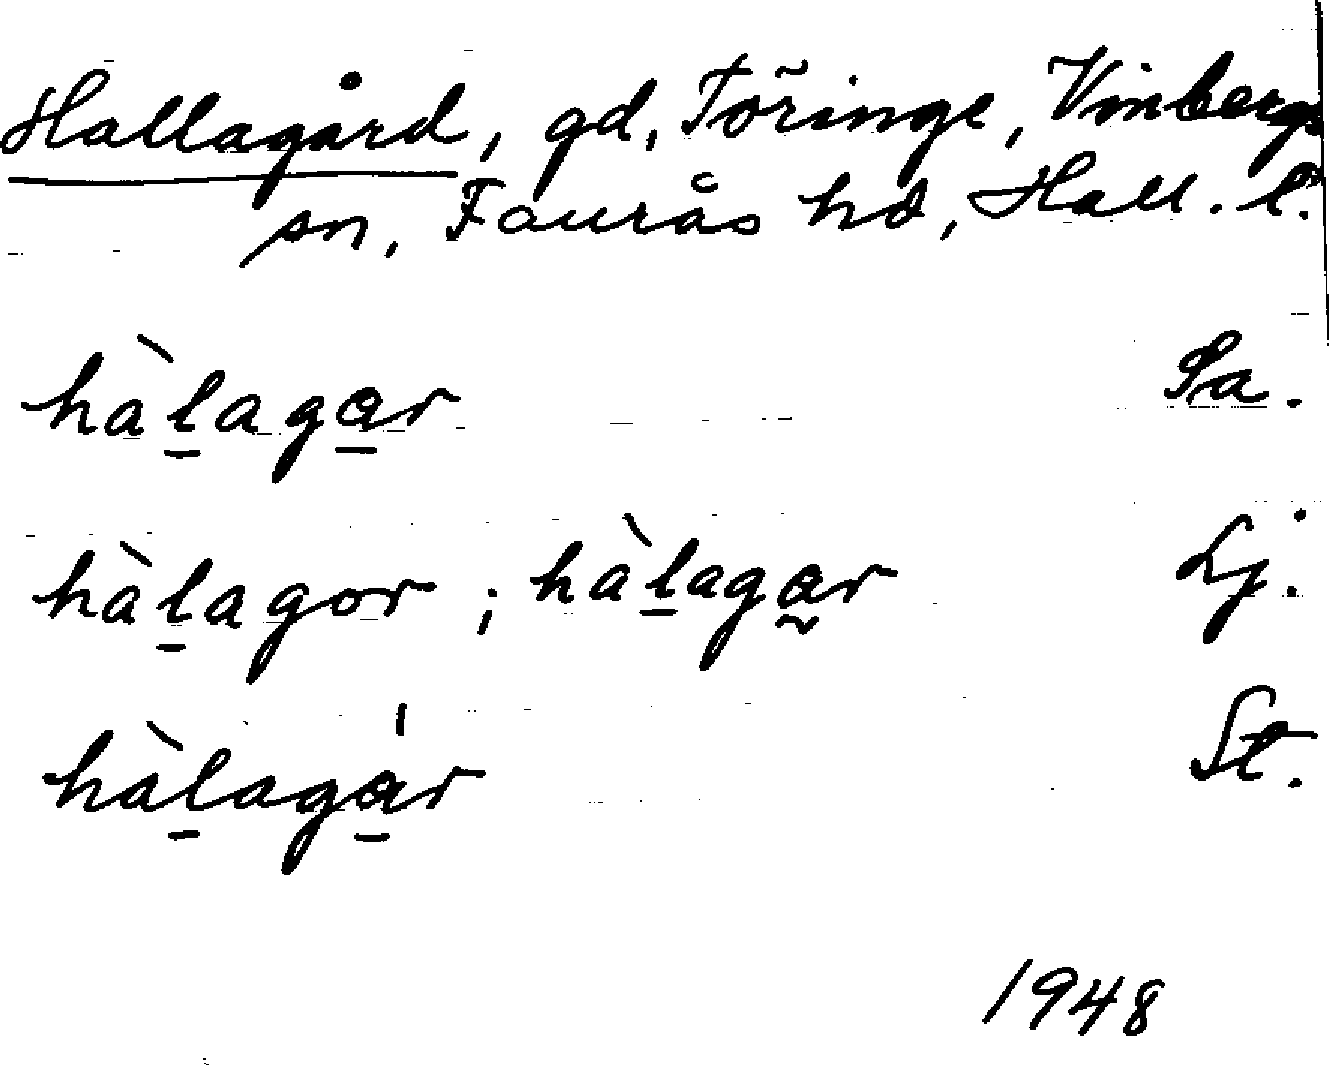 Hallagård, gd, Töringe, Vinbergs
sn, Faurås hd, Hall. l.
hàl̲aga̲r Sa.
hàl̲agor ; hàl̲aga̰r Lj.
hàl̲agá̲r St.
1948